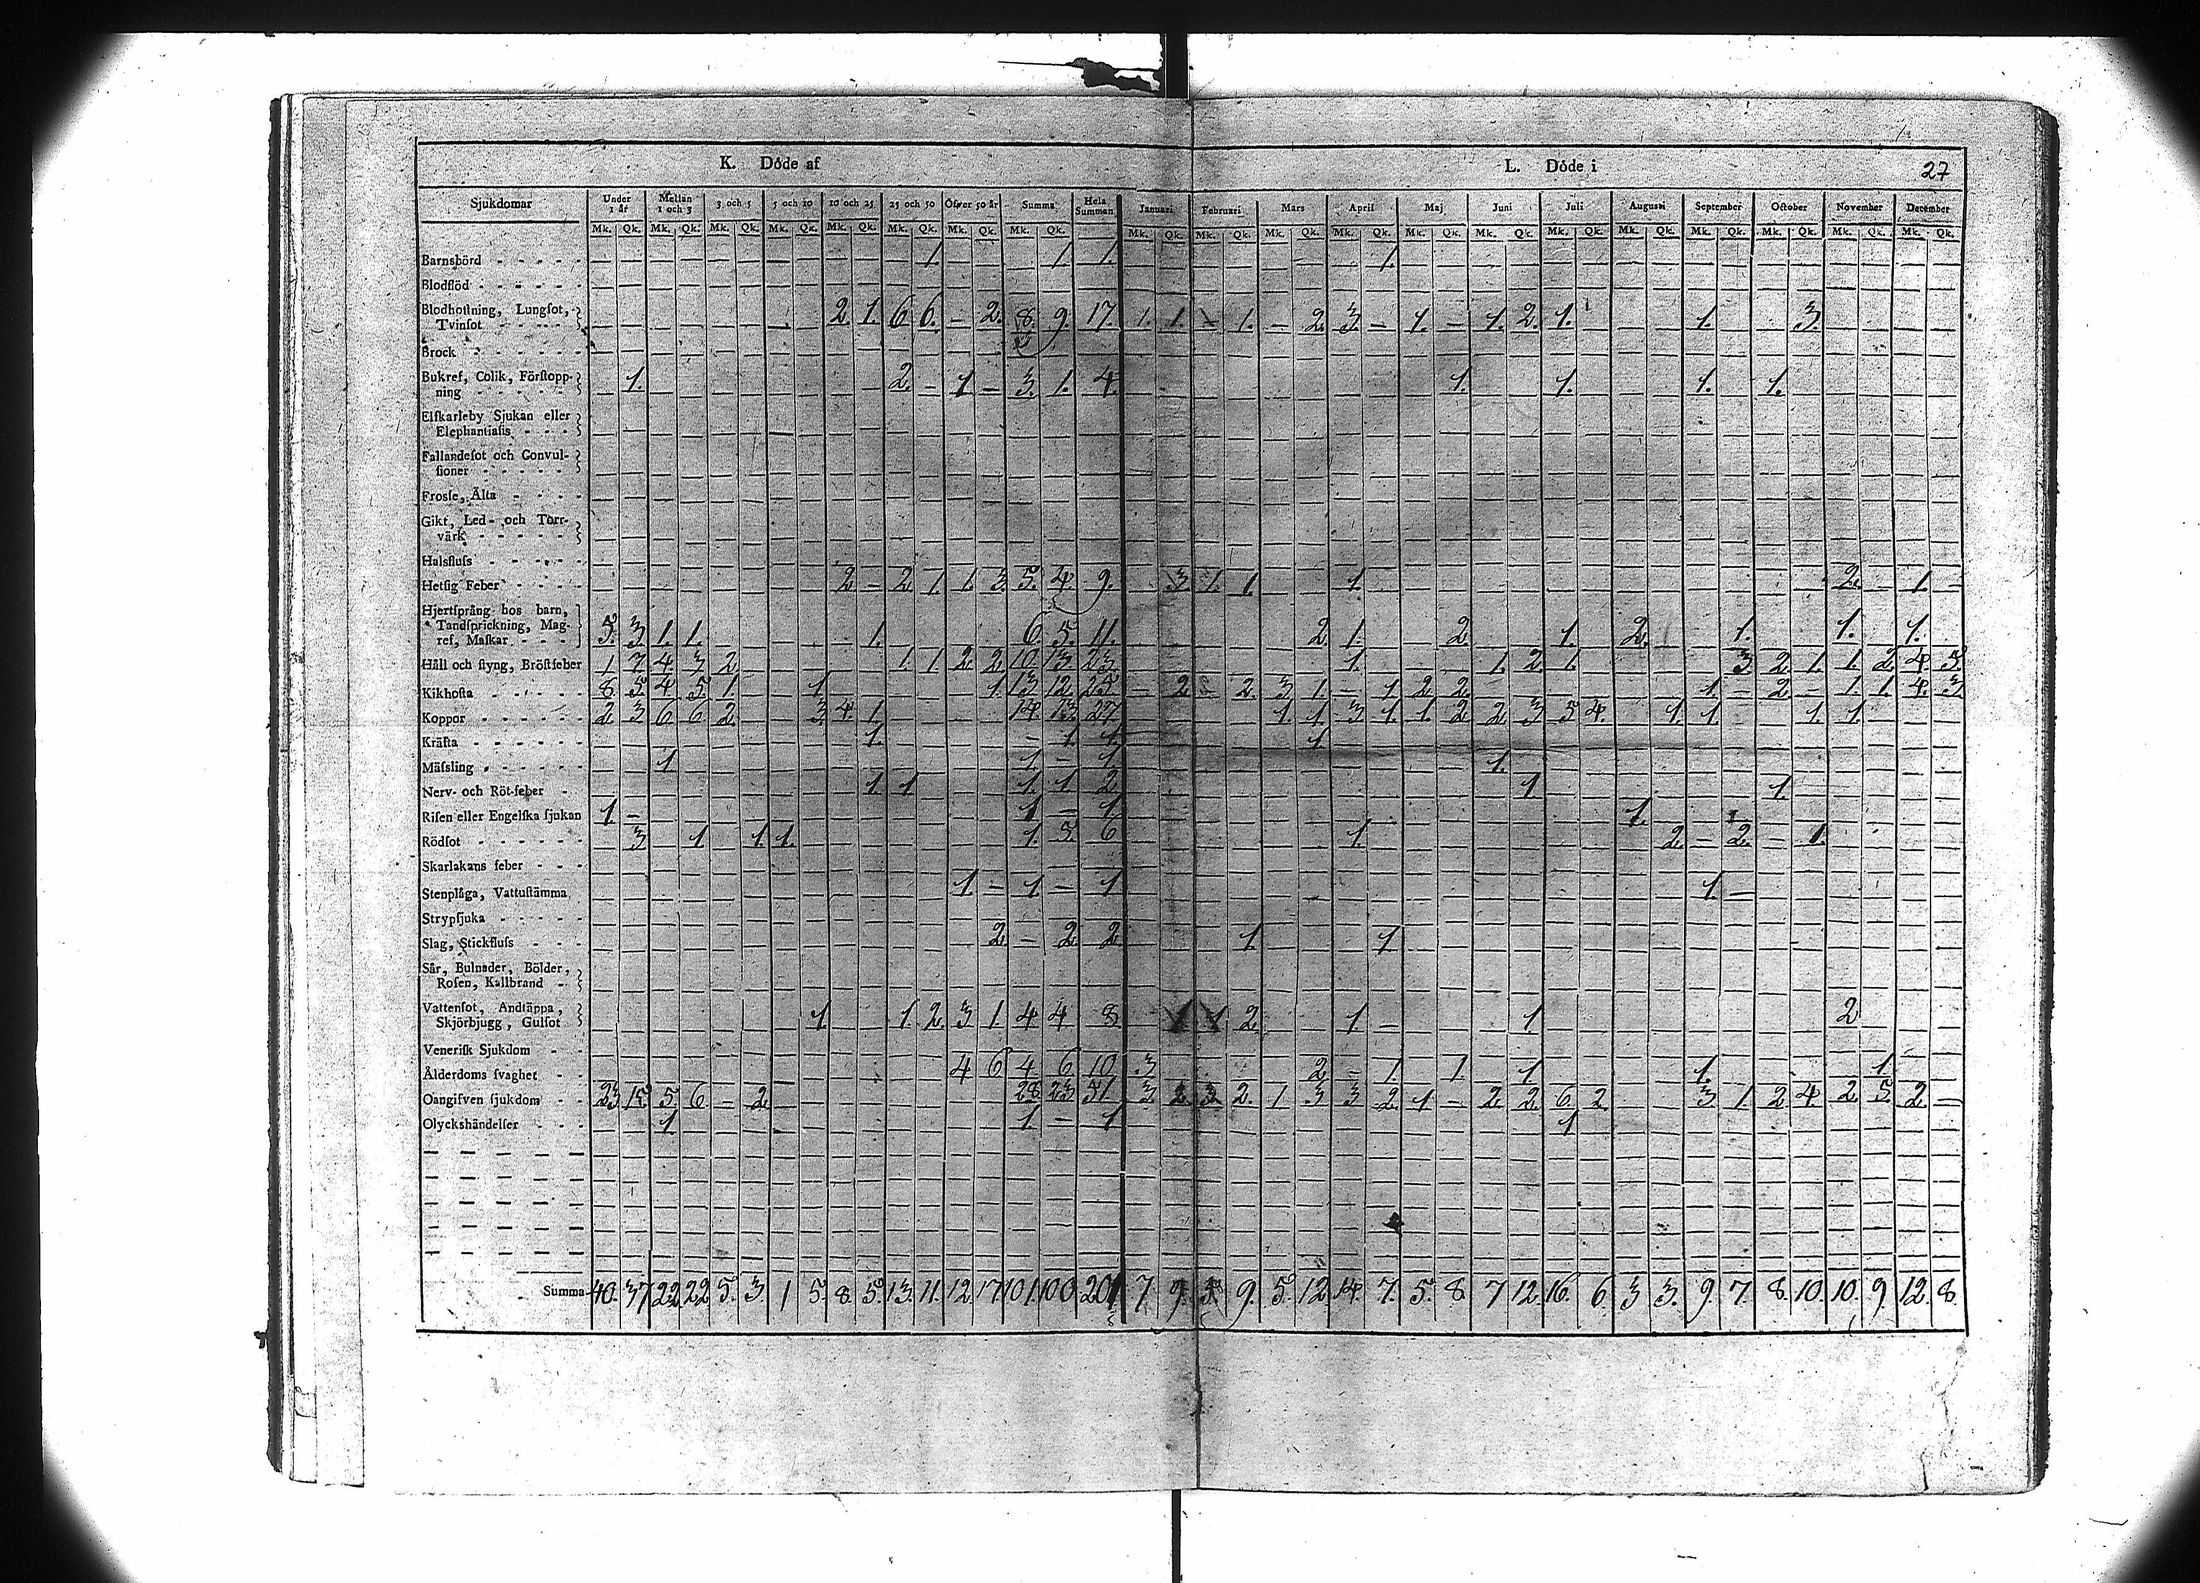 K. Döde af
L. Döde i
27
Sjukdomar Under 1 år Mellan 1 och 3 3 och 5 5 och 10 10 och 25 25 och 50 Öfver 50 år Summa Hela Summan Januari Februari Mars April Maj Juni Juli Augusti September October November December
Mk. Qk. Mk. Qk. Mk. Qk. Mk. Qk. Mk. Qk. Mk. Qk. Mk. Qk. Mk. Qk. Mk. Qk. Mk. Qk. Mk. Qk. Mk. Qk. Mk. Qk. Mk. Qk. Mk. Qk. Mk. Qk. Mk. Qk. Mk. Qk. Mk. Qk. Mk. Qk.
Barnsbörd 1 1 1. 1.
Blodflöd
Blodhostning, Lungsot,
Tvinsot 2. 1. 6 6. – 2. 8. 9. 17. 1. 1. – 1. – 2. 3. – 1. – 1. 2. 1. 1. 3.
Brock
Bukref, Colik, Förstopp-
ning 1. 2. – 1 – 3. 1. 4. 1. 1. 1. 1.
Elfkarleby Sjukan eller
Elephantiasis
Fallandesot och Convul-
sioner
Frossa, Älta
Gikt, Led- och Torr-
värk
Halsfluss
Hetsig Feber 2 – 2. 1. 1. 3. 5. 4. 9. 3. 1. 1. 1. 2. – 1. –
Hjertsprång hos barn,
Tandsprickning, Mag-
ref, Maskar 5. 3 1. 1. 1. 6. 5. 11. 2. 1. 2. 1. 2. 1. 1. 1.
Håll och styng, Bröstfeber 1 7 4. 3 2 1. 1 2. 2. 10. 13 23. 1. 1. 2. 1. 3. 2. 1. 1. 2. 4. 5.
Kikhosta 8. 5. 4. 5. 1. 1. 1. 13 12. 25 – 2. – 2. 3 1. – 1 2. 2. 1. – 2. – 1. 1. 4. 3.
Koppor 2. 3 6 6 2. 3. 4. 1. 14. 13. 27 1. 1. 3. 1. 1. 2. 2. 3 5 4. 1. 1. 1. 1.
Kräfta 1. – 1. 1. 1.
Mässling 1 1 – 1 1.
Nerv- och Röt-feber 1 1 1. 1 2 1. 1.
Risen eller Engelska sjukan 1. – 1 – 1. 1.
Rödsot 3 1 1. 1. 1. 5. 6 1. 2. – 2. – 1.
Skarlakans feber
Stenplåga, Vattustämma 1 – 1 – 1 1. –
Strypsjuka
Slag, Stickfluss 2 – 2. 2 1. 1.
Sår, Bulnader, Bölder,
Rosen, Kallbrand
Vattensot, Andtäppa,
Skjörbjugg, Gulsot 1. 1. 2. 3 1. 4 4 8. 1. 1 2. 1. – 1 2
Venerisk Sjukdom
Ålderdoms svaghet 4 6 4 6 10 3. 2 – 1. 1. 1 1. 1.
Oangifven sjukdom 23 15. 5 6 – 2. 28 23 51 3. 2. 3. 2. 1 3 3 2. 1 – 2 2. 6 2. 3. 1 2 4. 2. 5. 2. –
Olyckshändelser 1. 1. – 1 1
Summa 40. 37 22 22 5. 3 1 5. 8. 5. 13. 11. 12. 17 101. 100. 201 7 9. 5 9. 5. 12 14. 7. 5. 8. 7 12. 16. 6. 3 3. 9. 7. 8. 10. 10. 9. 12. 8.